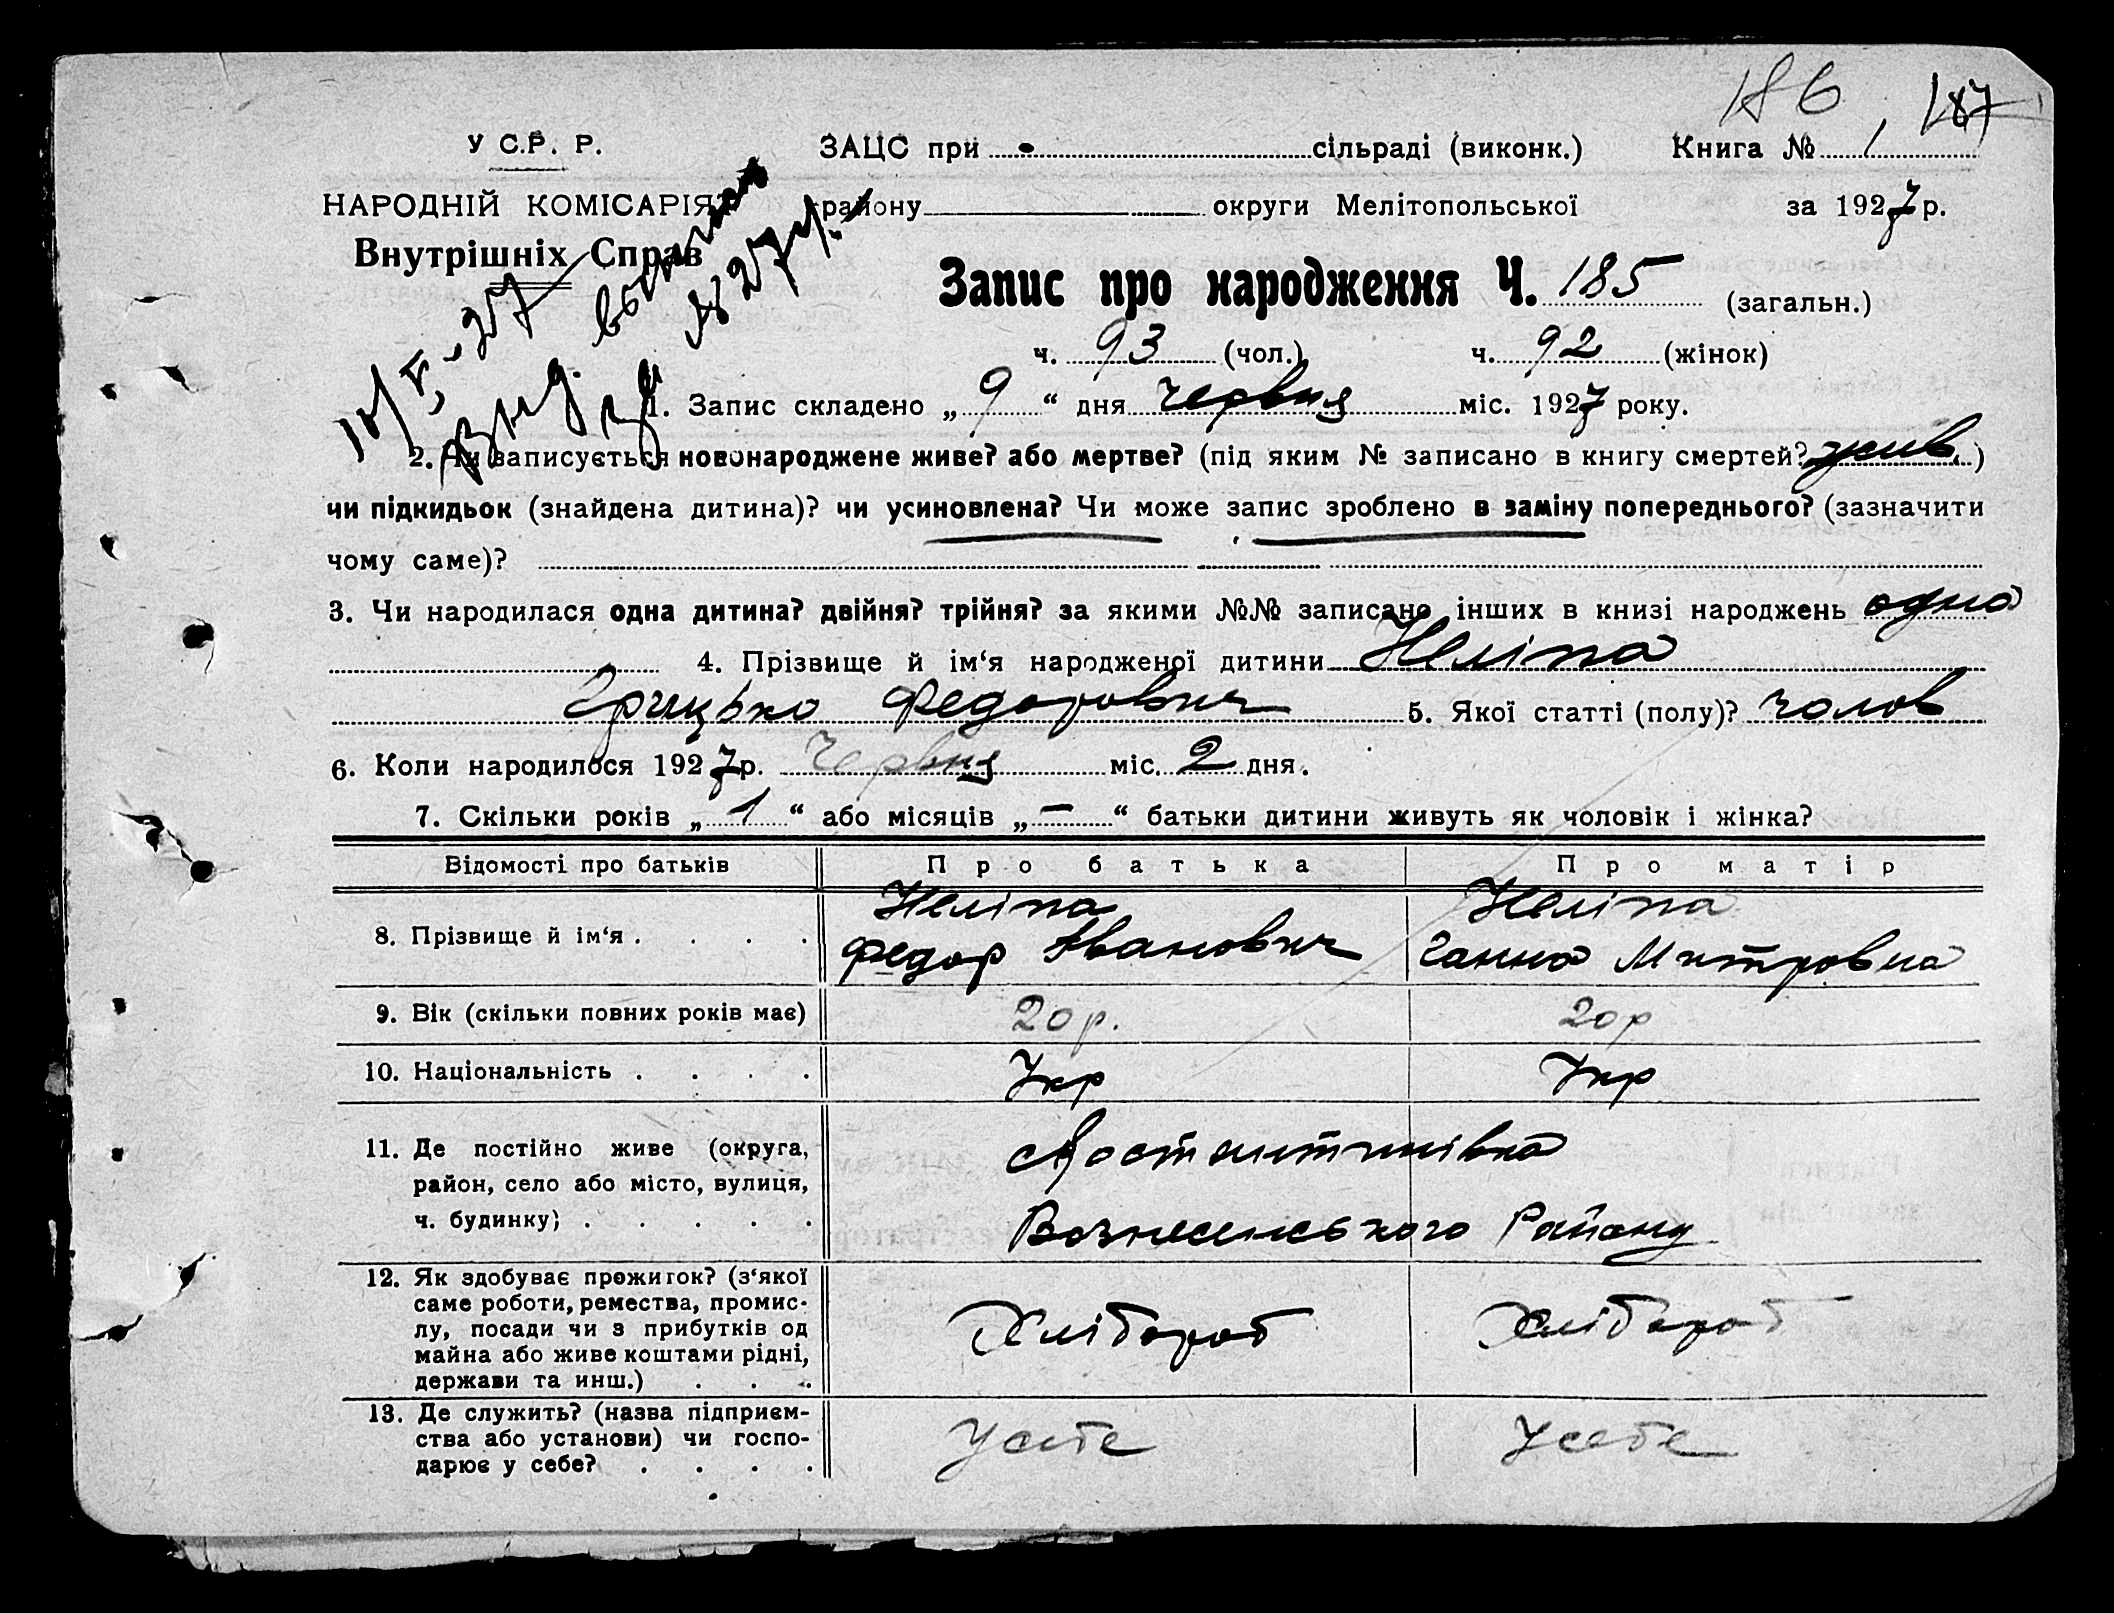 186 187
У С.Р. Р. ЗАЦС при сільраді (виконк.) Книга № 1
НАРОДНІЙ КОМІСАРІЯТ району округи Мелітопольської за 1927 р.
Внутрішніх Справ
Запис про народження Ч. 185 (загальн.)
ч. 93 (чол.) ч. 92 (жінок)
1. Запис складено „ 9 “ дня червня міс. 1927 року.
2. Чи записується новонароджене живе? або мертве? (під яким № записано в книгу смертей? жив.)
чи підкидьок (знайдена дитина)? чи усиновлена? Чи може запис зроблено в заміну попереднього? (зазначити
чому саме)?
3. Чи народилася одна дитина? двійня? трійня? за якими №№ записано інших в книзі народжень одна
4. Прізвище й ім‘я народженої дитини Неліпа
Грицько Федорович 5. Якої статті (полу)? чолов
6. Коли народилося 1927 р. Червня міс. 2 дня.
7. Скільки років „ 1 “ або місяців „ — “ батьки дитини живуть як чоловік і жінка?
Відомості про батьків Про батька Про матір
8. Прізвище й ім‘я . . . . Неліпа Неліпа
Федор Іванович Ганна Митровна
9. Вік (скільки повних років має) 20 р. 20 р
10. Національність . . . . Укр Укр
11. Де постійно живе (округа,
район, село або місто, вулиця,
ч. будинку) . . . . . Вознесенського Району
12. Як здобуває прожиток? (з‘якої
саме роботи, ремества, промис-
лу, посади чи з прибутків од
майна або живе коштами рідні,
держави та инш.) . . . Хлібороб Хлібороб
13. Де служить? (назва підприєм-
ства або установи) чи госпо-
дарює у себе? . . . . У себе У себе